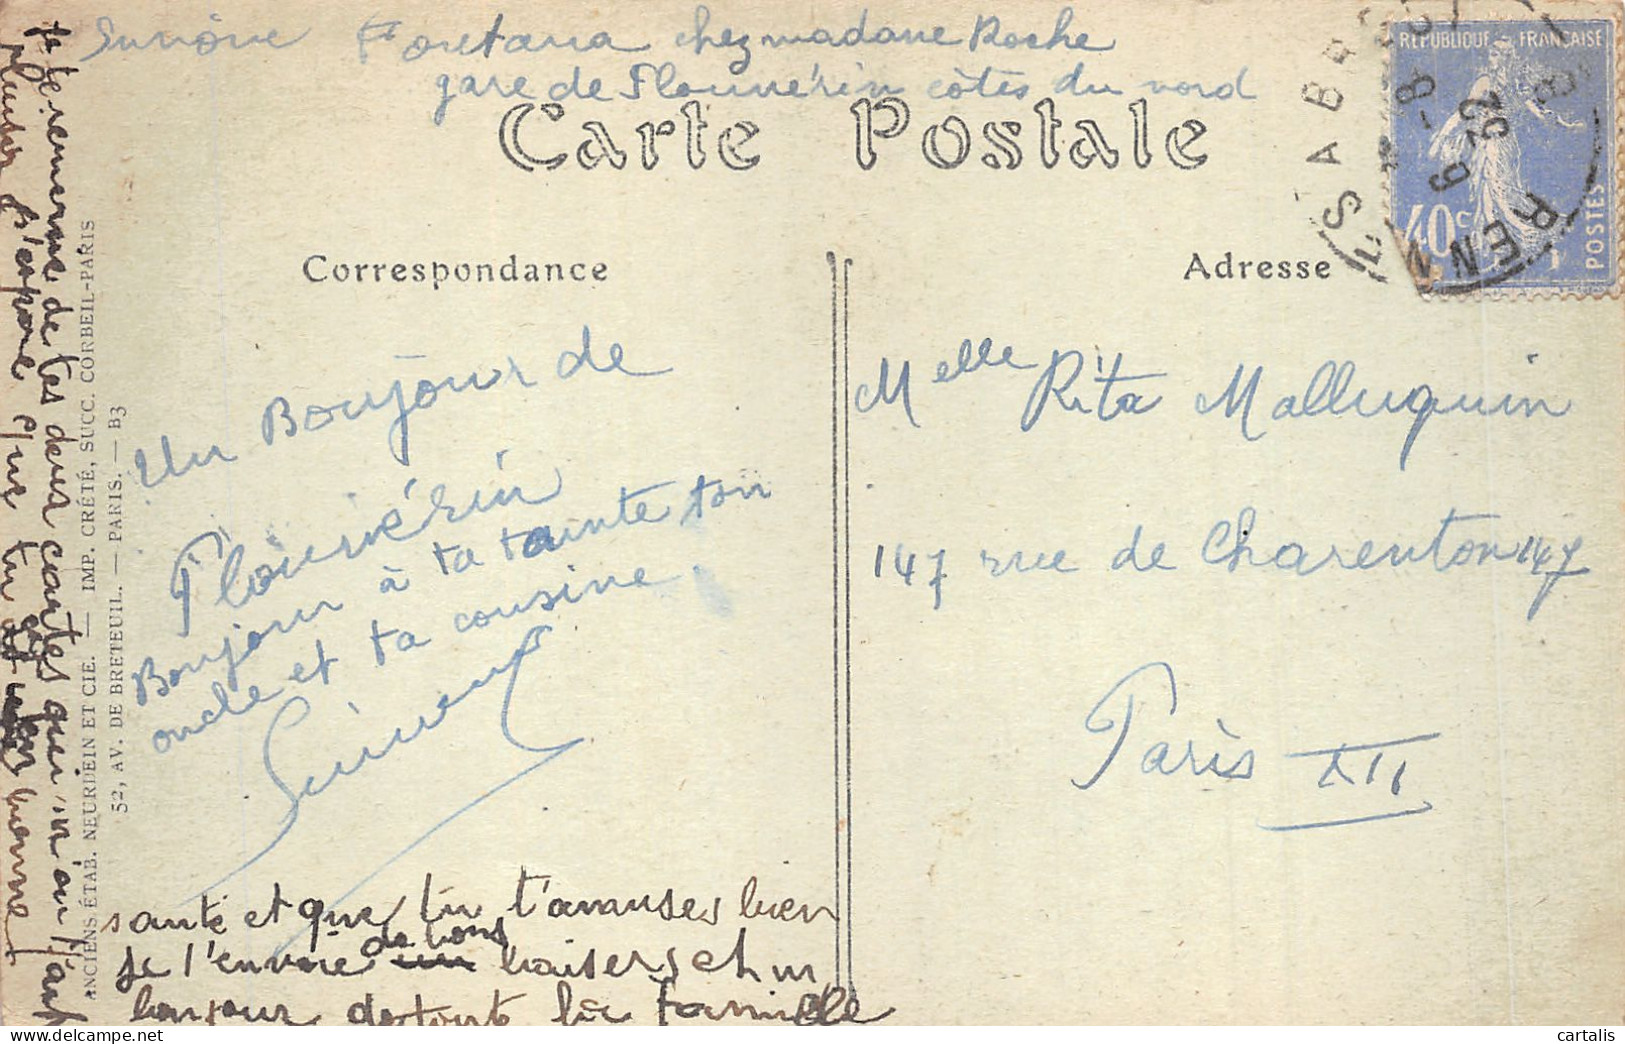 Simone Fontana chez madame Roche
gare de Plounérin côtes du nord
Carte Postale
Correspondance
Adresse
RÉPUBLIQUE FRANÇAISE
40c
POSTES
RENNES
8 - 6 - 32
Un Boujour de
Plounérin
Boujour à ta tainte ton
oncle et ta cousine.
Simone
Melle Rita Malluquin
147 rue de Charenton 147
Paris XII
Je te remercie de tes deux cartes qui m'on
plaisir j'espère que tu en bonne
santé et que tu t'amuses bien
Je t'envoie de bons baisers et un
bonjour de toute la famille
ANCIENS ÉTAB. NEURDEIN ET CIE. — IMP. CRÉTÉ, SUCC. CORBEIL-PARIS
52, AV. DE BRETEUIL. — PARIS. — B3
cartalis